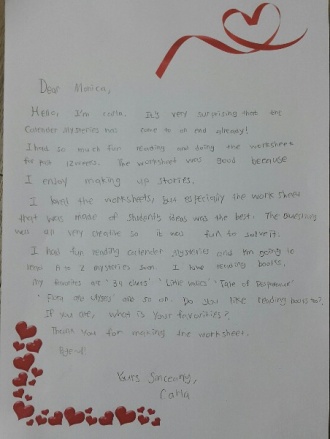 Dear Monica,
Hello! I'm Carla. It's very surprising that the
Calendar Mysteries has come to an end already!
I had so much fun reading and doing the worksheets
for past 12 weeks. The worksheet was good because
I enjoy making up stories.
I loved the worksheets, but especially the work sheet
that was made of students ideas was the best. The questions
were all very creative so it was fun to solve it.
I had fun reading calender mysteries and I'm going to
read A to Z mysteries soon. I love reading books,
my favorites are "39 clues" "Tale of Despereaux"
so on. Do you like reading books too?
If you are, what is your favorites?
Thank you for making the worksheet.
Bye~!
Yours Sincerely,
Carla